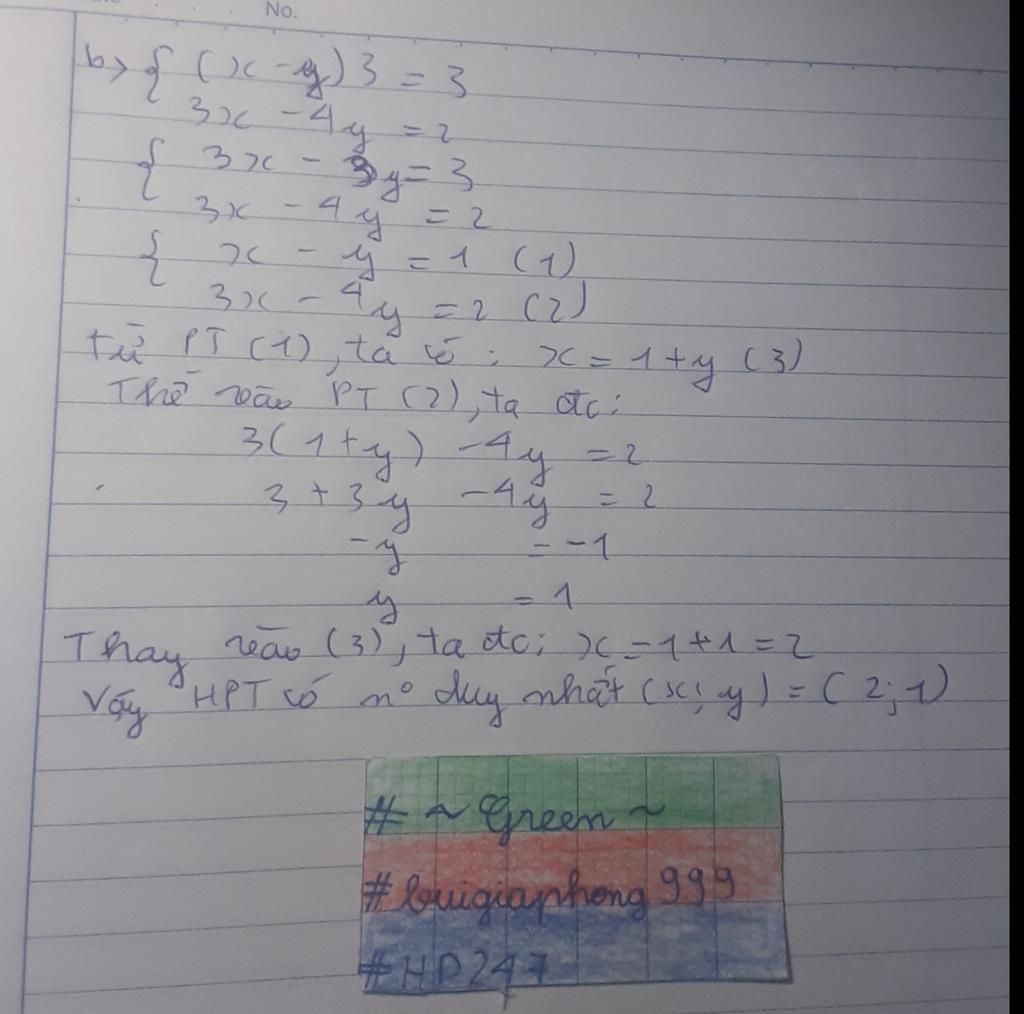 No.
b> { (x - y) 3 = 3
3x - 4y = 2
{ 3x - 3y = 3
3x - 4y = 2
{ x - y = 1 (1)
3x - 4y = 2 (2)
từ PT (1), ta có : x = 1 + y (3)
Thế vào PT (2), ta đc:
3(1 + y) - 4y = 2
3 + 3y - 4y = 2
-y = -1
y = 1
Thay vào (3), ta đc: x = 1 + 1 = 2
Vậy HPT có nº duy nhất (x; y) = (2; 1)
# ~ Green ~
# buigiaphong 999
# HD247